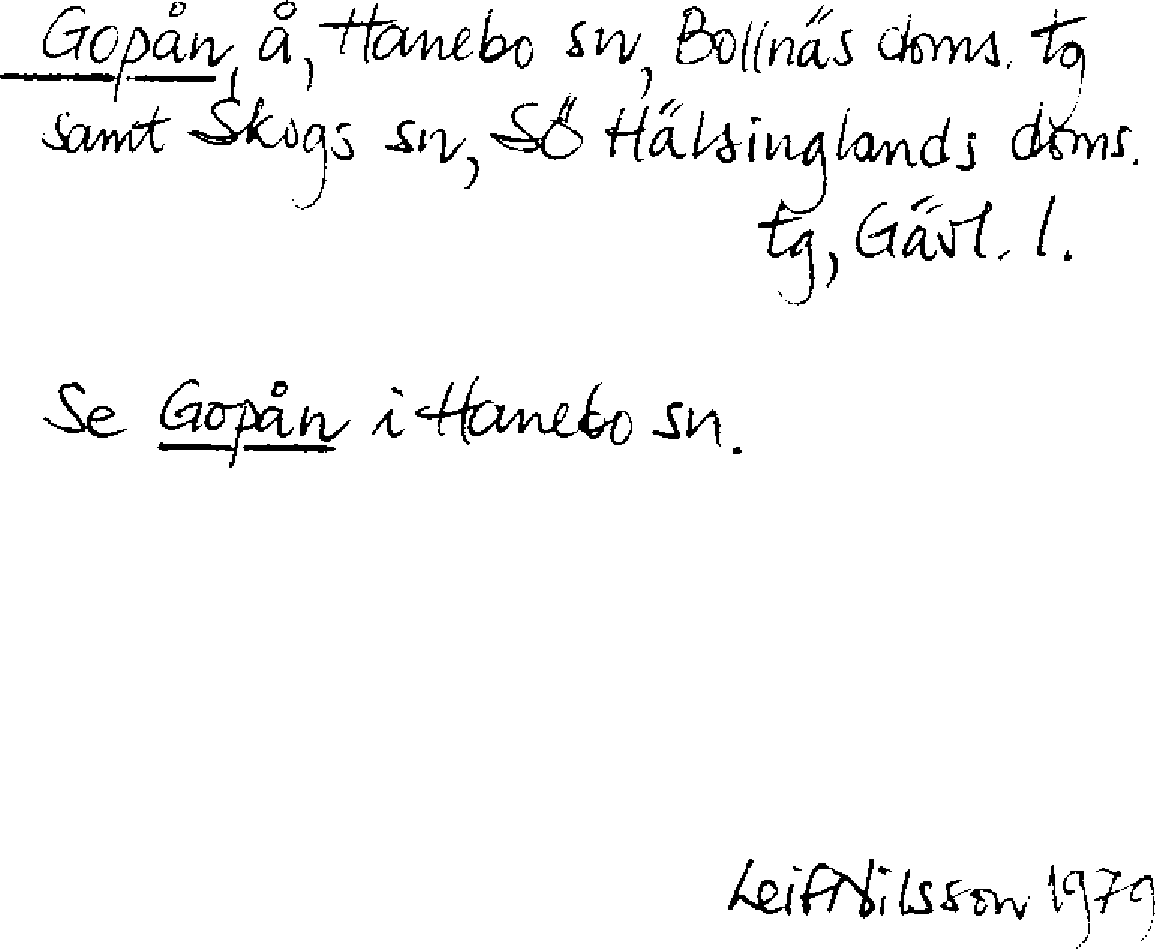 Gopån, å, Hanebo sn, Bollnäs doms. tg
samt Skogs sn, SÖ Hälsinglands doms.
tg, Gävl. l.
Se Gopån i Hanebo sn.
Leif Nilsson 1979